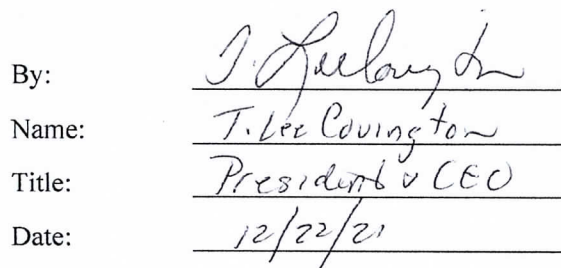 By: T. Lee Covington
Name: T. Lee Covington
Title: President & CEO
Date: 12/22/21